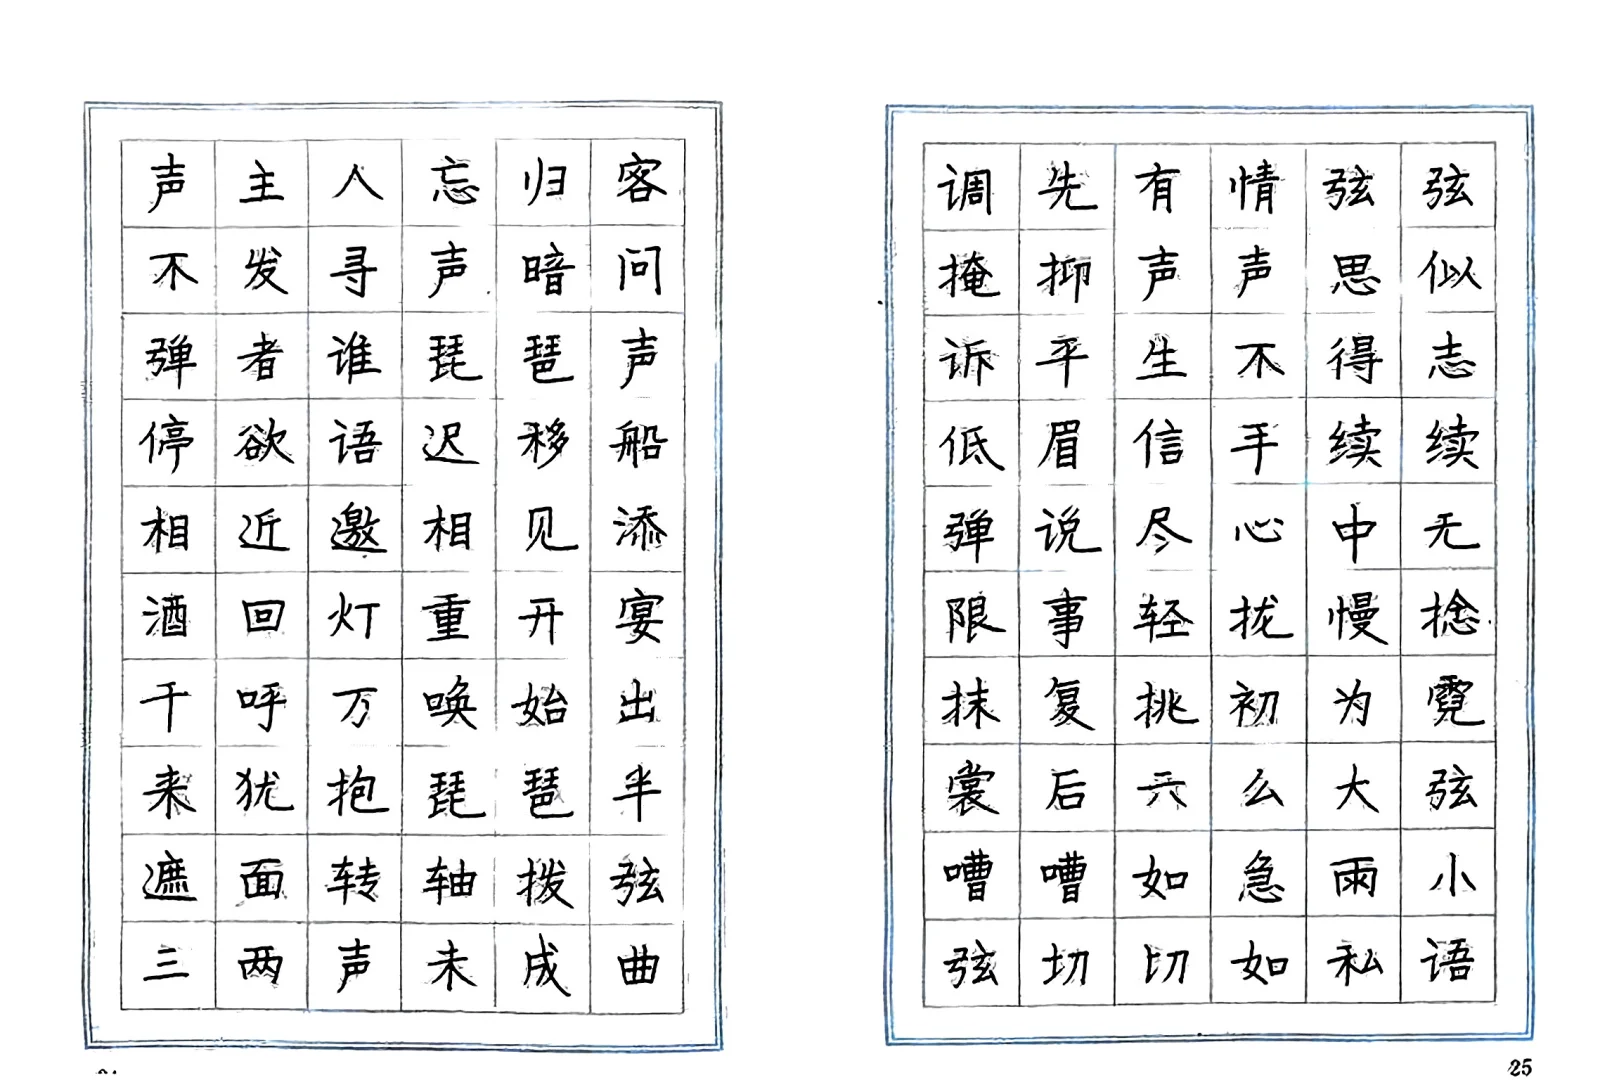 声主人忘归客
不发寻声暗问
弹者谁琵琶声
停欲语迟移船
相近邀相见添
酒回灯重开宴
千呼万唤始出
来犹抱琵琶半
遮面转轴拨弦
三两声未成曲
调先有情弦弦
掩抑声声思似
诉平生不得志
低眉信手续续
弹说尽心中无
限事轻拢慢捻
抹复挑初为霓
裳后六么大弦
嘈嘈如急雨小
弦切切如私语
25